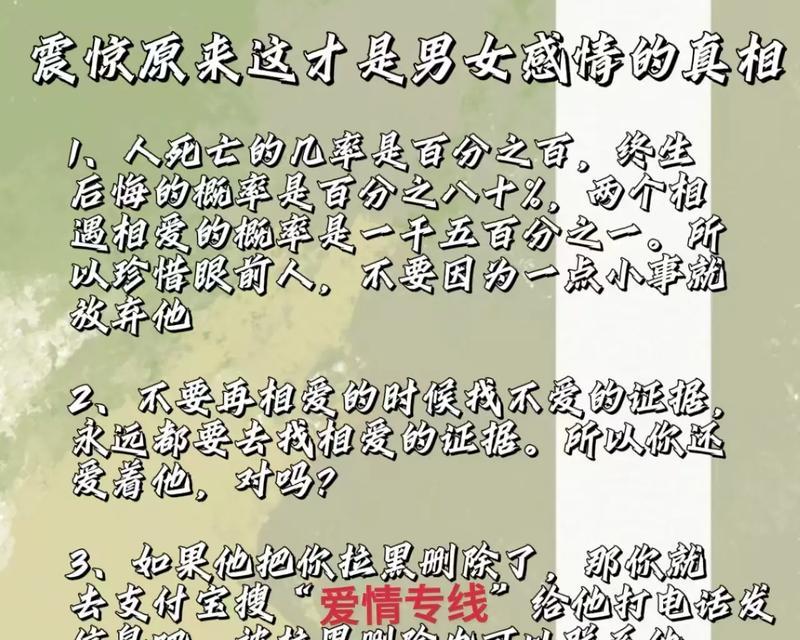 震惊原来这才是男女感情的真相
1、人死亡的几率是百分之百，终生
后悔的概率是百分之八十%，两个相
遇相爱的概率是一千五百分之一。所
以珍惜眼前人，不要因为一点小事就
放弃他
2、不要再相爱的时候找不爱的证据，
永远都要去找相爱的证据。所以你还
爱着他，对吗？
3、如果他把你拉黑删除了，那你就
去支付宝搜“爱情专线”给他打电话发